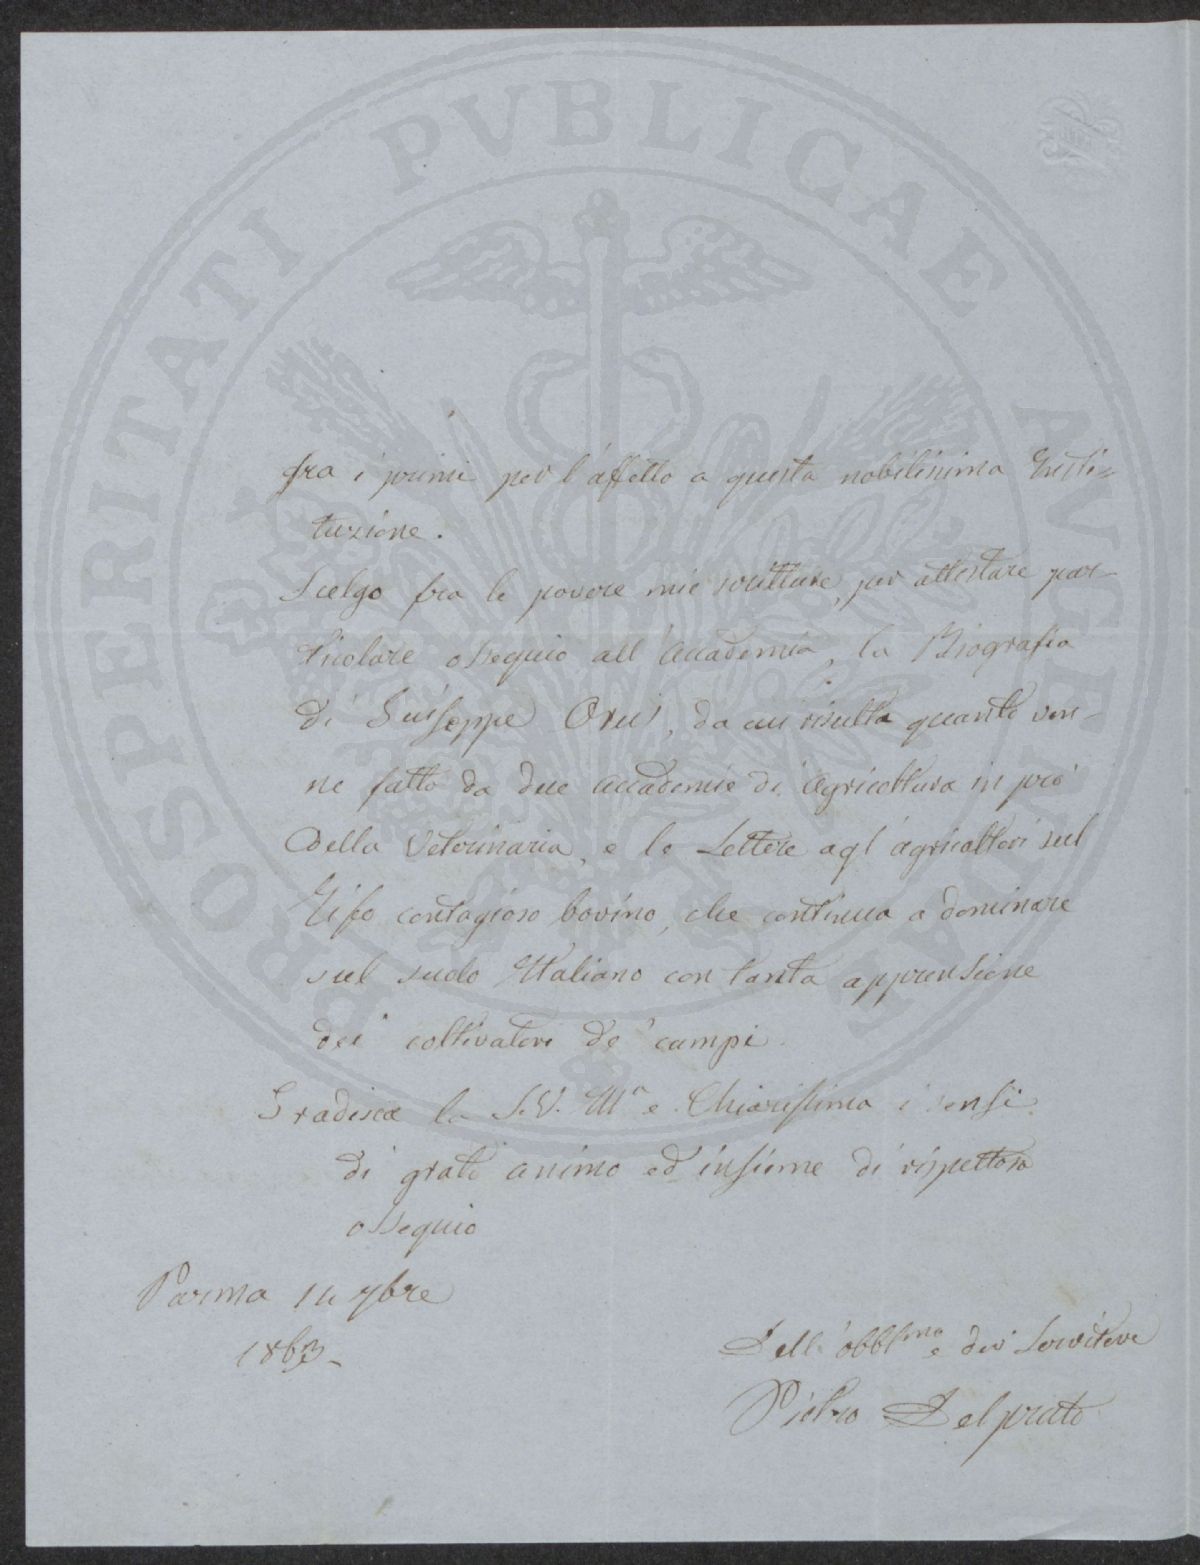 PROSPERITATI PVBLICAE AVGENDAE
fra i primi per l'affetto a questa nobilissima Insti=
tuzione.
Scelgo fra le povere mie scritture, per attestare par-
ticolare ossequio all'Accademia, la Biografia
di Giuseppe Orus, da cui risulta quanto ven-
ne fatto da due accademie di Agricoltura in prò
della Veterinaria, e le Lettere agl'agricoltori sul
Tifo contagioso bovino, che continua a dominare
sul suolo Italiano con tanta apprensione
dei coltivatori de' campi.
Gradisca la S.V. Illa e Chiarissima i sensi
di grato animo ed insieme di rispettoso
ossequio
Parma 14 9bre
1863-
Dell'obblmo e dev Servitore
Pietro Delprato